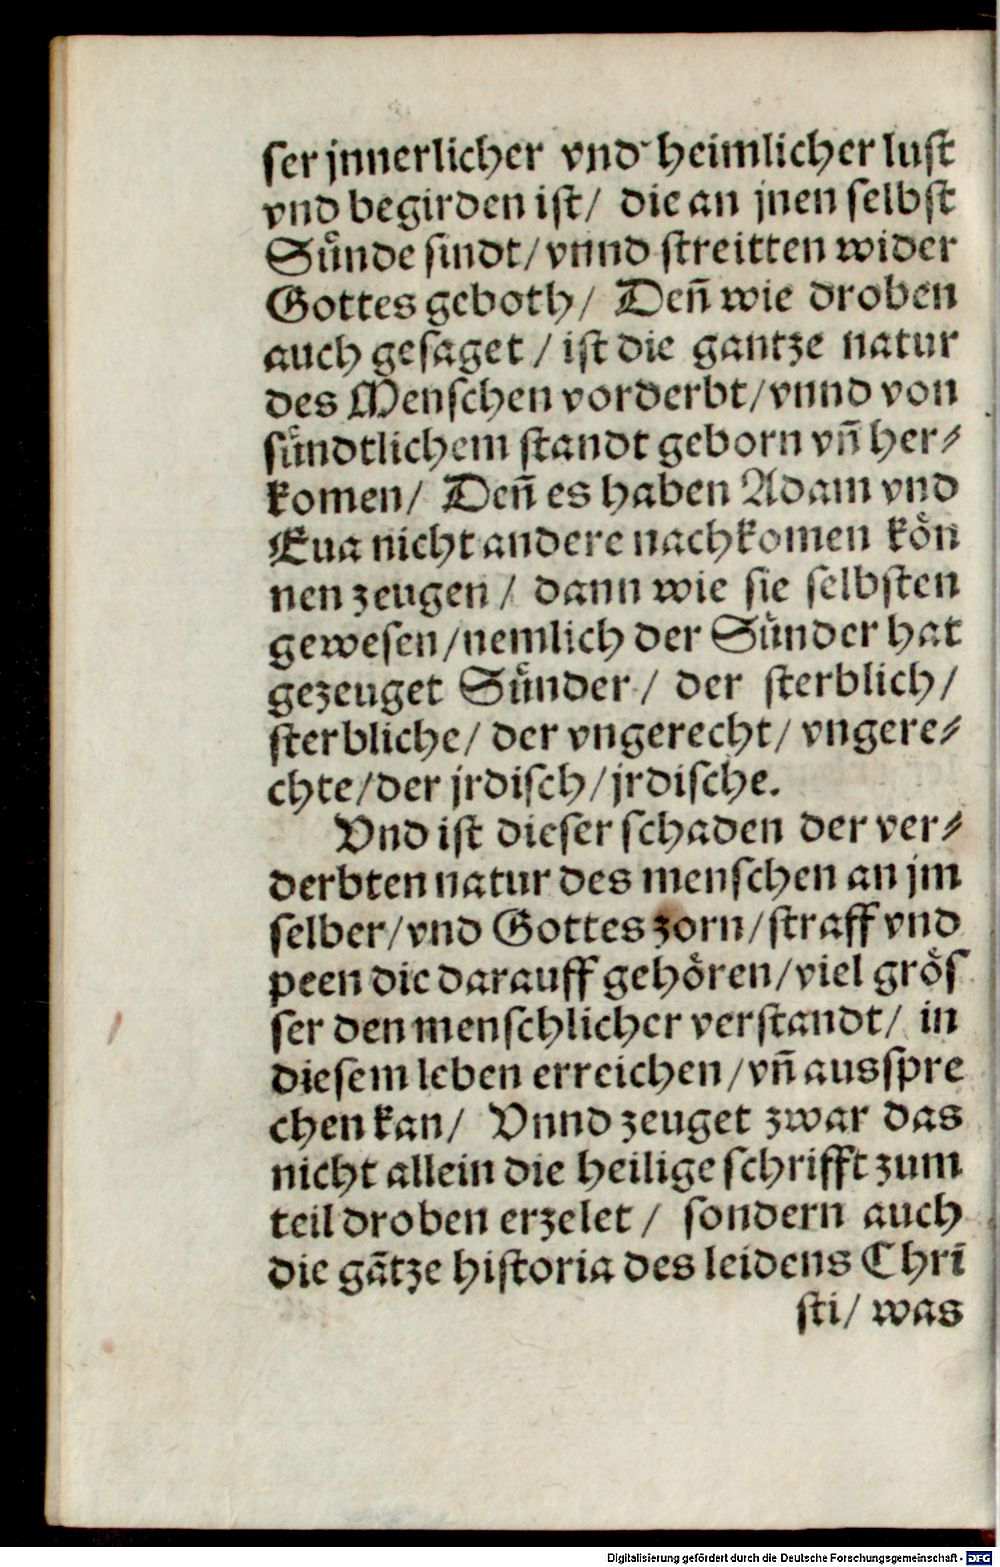 ser jnnerlicher vnd heimlicher lust
vnd begirden ist/ die an jnen selbst
Suͤnde sindt/vnnd streitten wider
Gottes geboth/ Deñ wie droben
auch gesaget / ist die gantze natur
des Menschen vorderbt/vnnd von
suͤndtlichem standt geborn vñ her⸗
komen/ Deñ es haben Adam vnd
Eua nicht andere nachkomen koͤn
nen zeugen / dann wie sie selbsten
gewesen/nemlich der Suͤnder hat
gezeuget Suͤnder/ der sterblich/
sterbliche/ der vngerecht/ vngere⸗
chte/der jrdisch/jrdische.
Vnd ist dieser schaden der ver⸗
derbten natur des menschen an jm
selber/vnd Gottes zorn/straff vnd
peen die darauff gehoͤren/viel groͤs
ser den menschlicher verstandt/ in
diesem leben erreichen/vñ ausspre
chen kan/ Vnnd zeuget zwar das
nicht allein die heilige schrifft zum
teil droben erzelet / sondern auch
die gãtze historia des leidens Chri
sti/ was
Digitalisierung gefördert durch die Deutsche Forschungsgemeinschaft - DFG